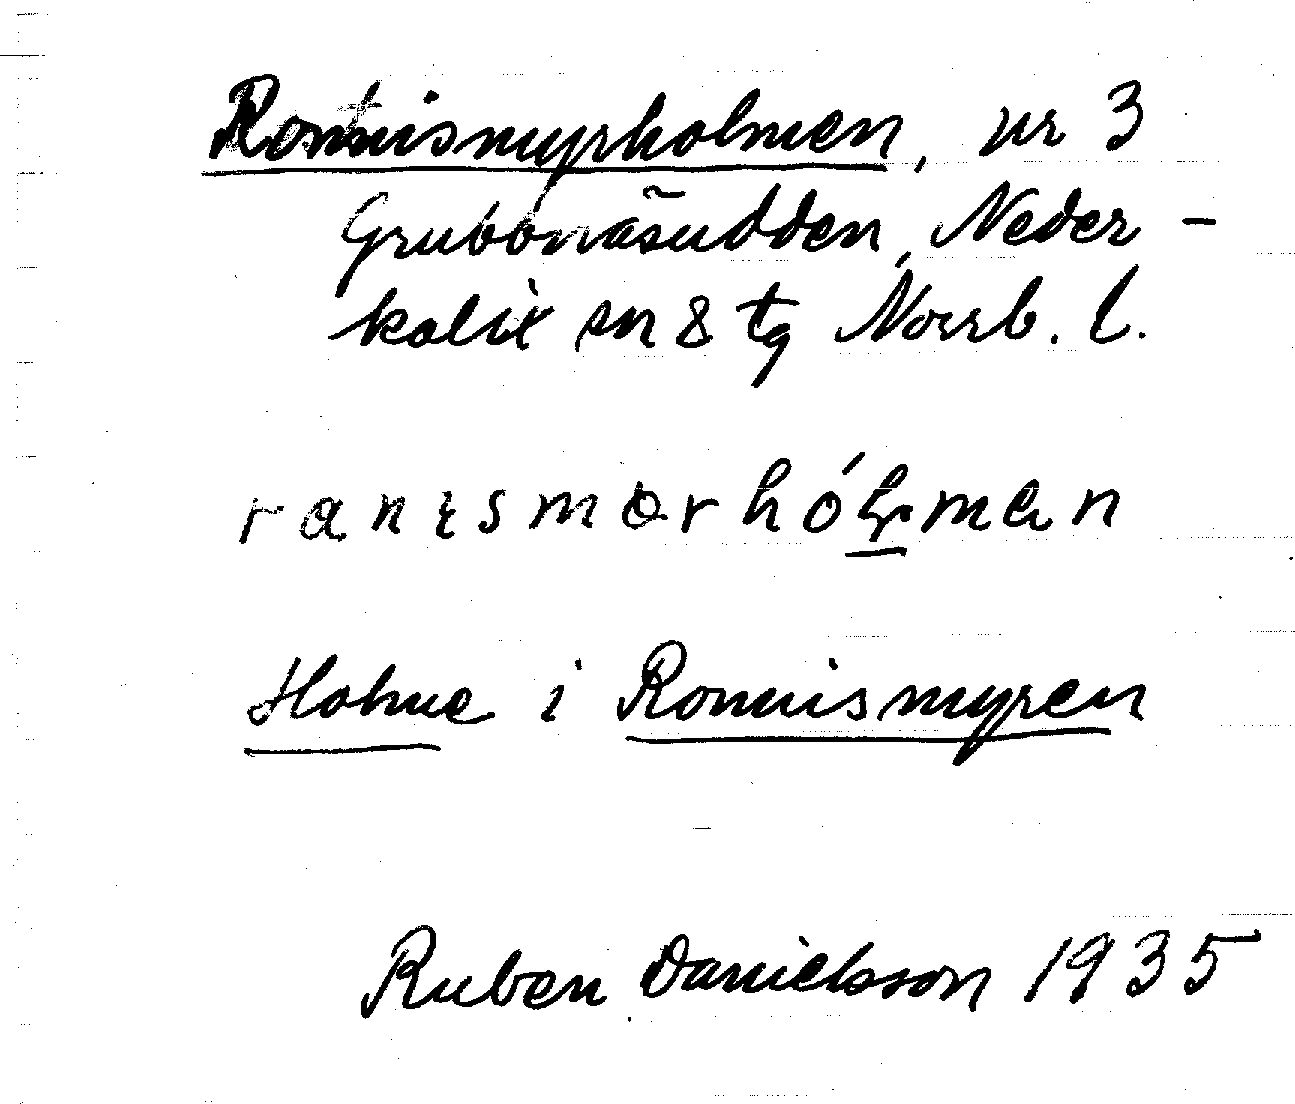 Ronnismyrholmen, nr 3
Grubbnäsudden, Neder-
kalix sn & tg Norrb. l.
Holme i Ronnismyren
Ruben Danielsson 1935